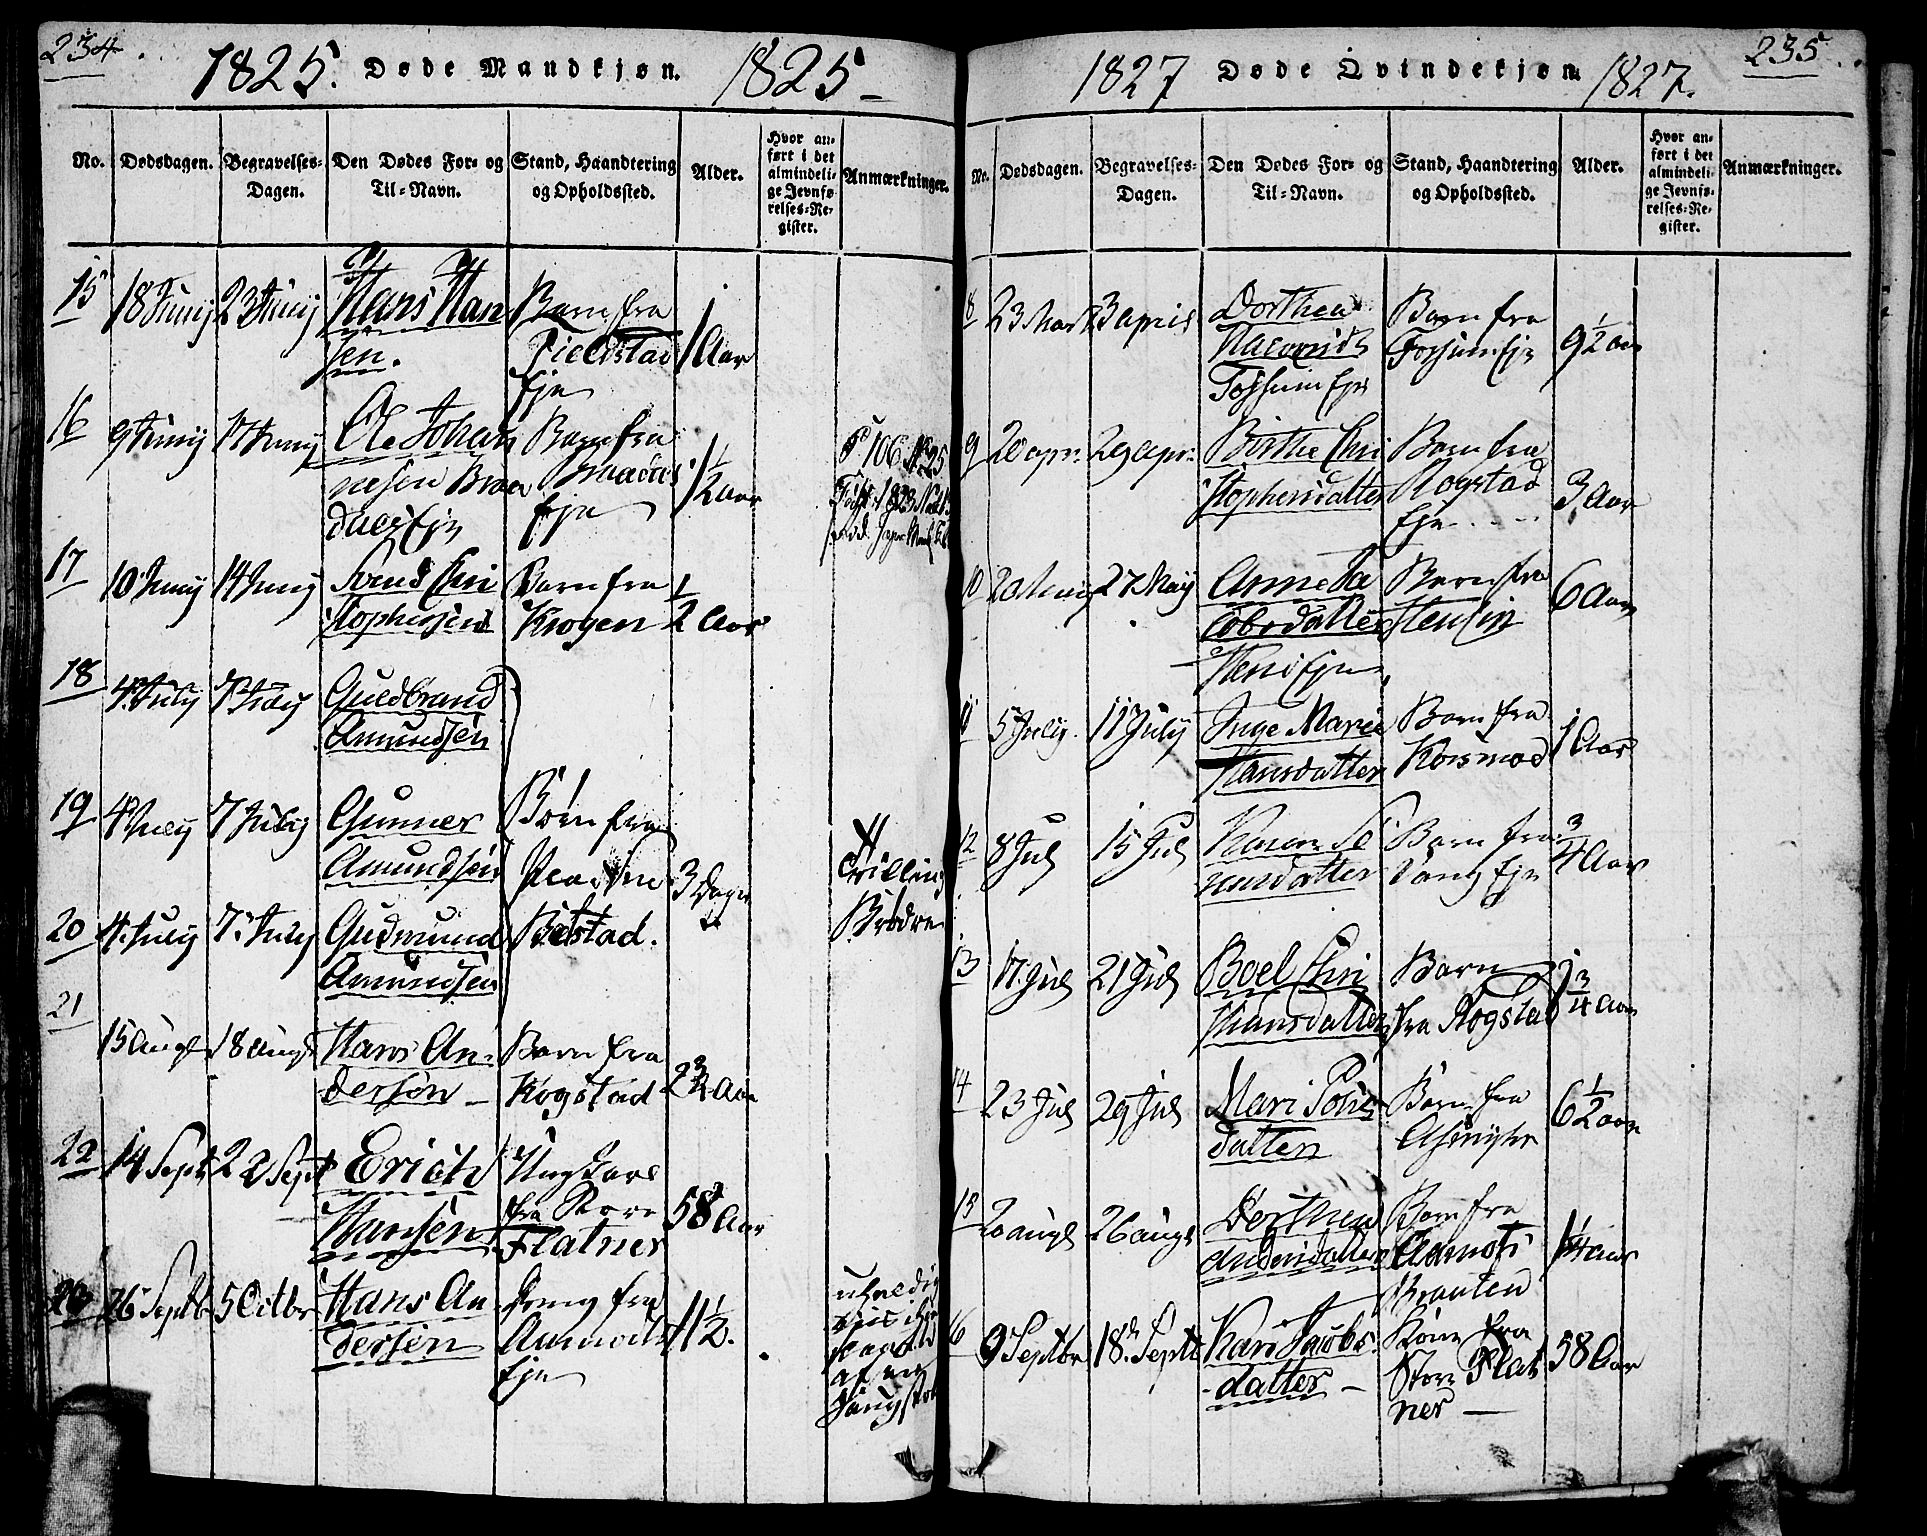 234.
1825. Døde Mandkjøn. 1825
No. Dødsdagen. Begravelses-Dagen. Den Dødes For- og Til-Navn. Stand, Haandtering og Opholdssted. Alder. Hvor anført i det almindelige Jevnførelses-Register. Anmærkninger.
15 18 Junij 23 Junij Hans Hansen. Barn fra Fieldstad Eje 1 Aar
16 9 Junij 17 Junij Ole Johannesen Barn fra Eje 1 1/2 Aar P 106 No 25
17 10 Junij 14 Junij Svend Christophersen Barn fra Krogen 1/2 Aar
18 4 July 7 July Guldbrand Amundsen
19 4 July 7 July Gunner Amundsen Børn fra 3 Dage Trilling Brødre
20 4. July 7. July Gudmund Amundsen Bilstad.
21 15 Augt 18 Augt Hans Andersøn Barn fra Rogstad Aar
22 14 Sept 22 Sept Erich Hansen Ungkarl fra Store Flatner 58 Aar
23 26 Septb 5 Octbr Hans Andersen Dreng fra Eje 11 1/2. af en
235.
1827 Døde Qvindekjøn 1827.
No. Dødsdagen. Begravelses-Dagen. Den Dødes For- og Til-Navn. Stand, Haandtering og Opholdssted. Alder. Hvor anført i det almindelige Jevnførelses-Register. Anmærkninger.
8 23 Mart 3 April Dorthea Fossum Eje Barn fra Fossum Eje 9 1/2 Aar
9 20 apr. 29 apr. Birthe Christophersdatter Barn fra Rogstad Eje 3 Aar
10 20 May 27 May Anne Jacobsdatter Barn fra 6 Aar
11 5 July. 11 July Inge Marie Hansdatter Barn fra Korsmoe 1 Aar
12 8 Jul 15 Jul Karen Barn fra Vang Eje 3/4 Aar
13 17. Jul 21 Jul Boel Christiansdatter Barn fra Rogstad 1 3/4 Aar
14 23 Jul 29 Jul Mari datter Barn fra 6 1/2 Aar
15 20 Augt 26 Augt Dorthea Andersdatter Barn fra Braaten Aar
16 9 Septbr 18. Septb Kari Jacobsdatter Kone fra Store Flatner 58 Aar